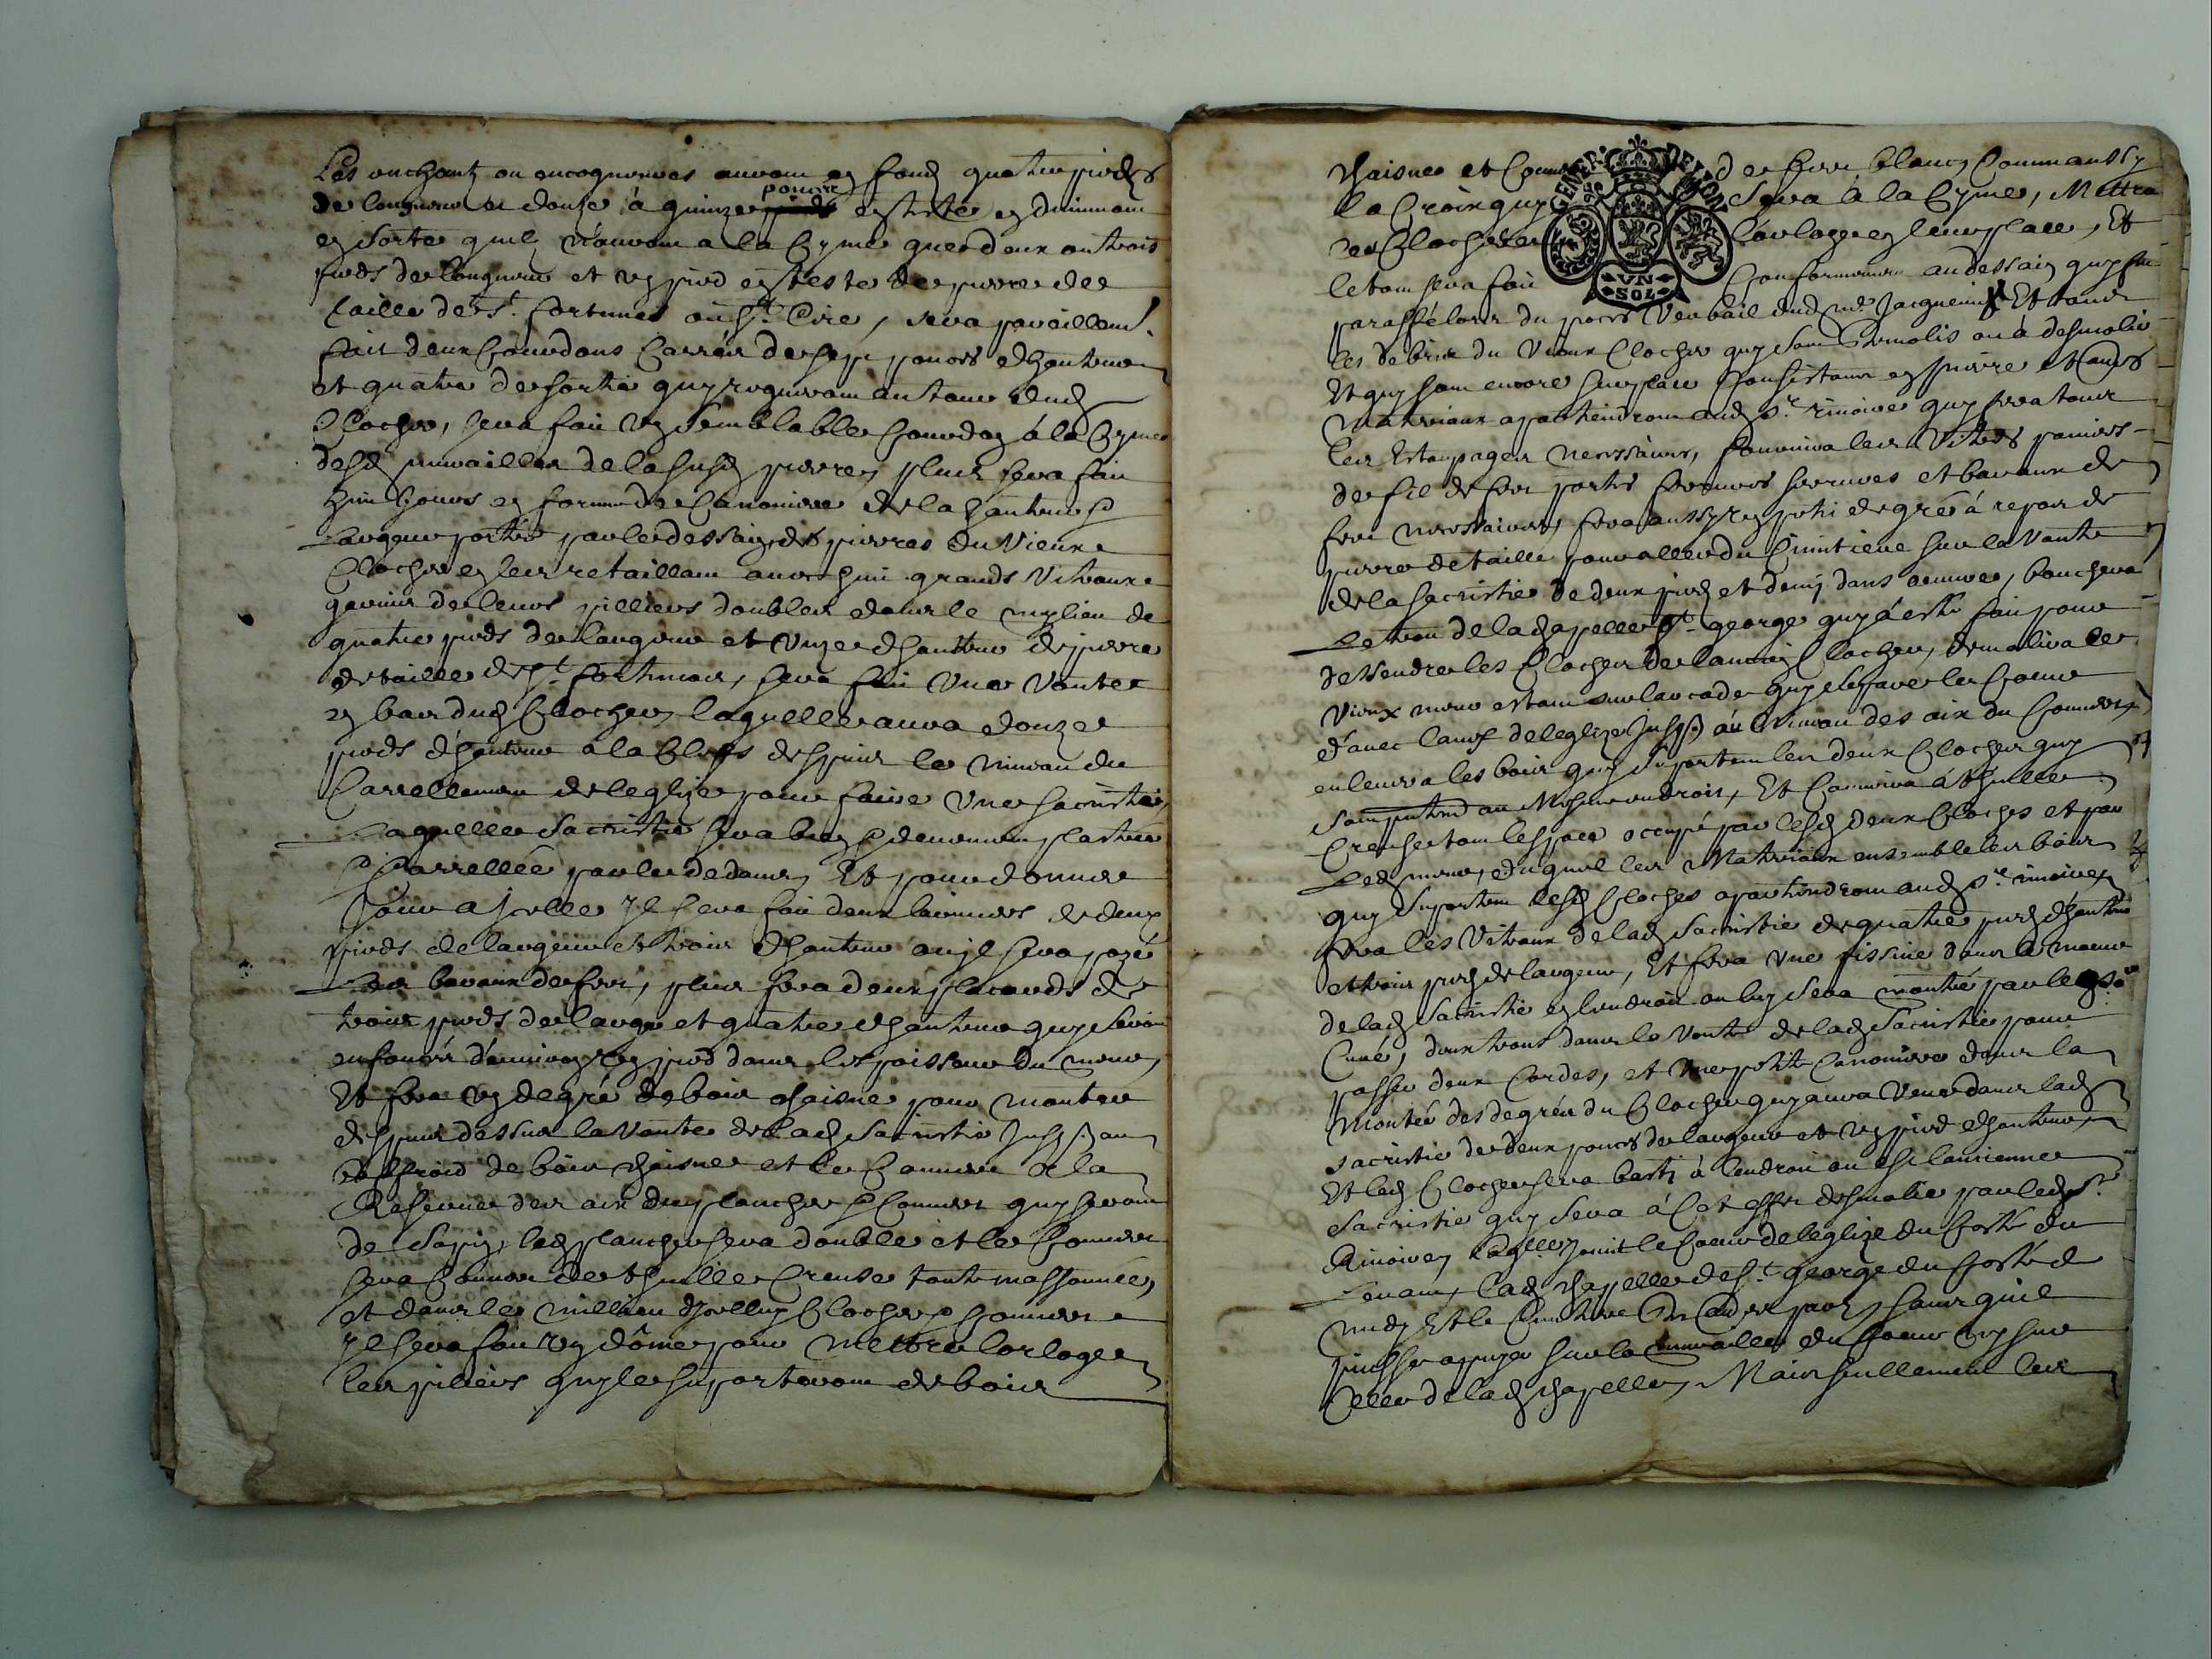 Les anchants ou encognures auront en fond quatre pieds
de longueur et douze à quinze pouces en teste en diminuant
en sorte quilz n'auront a la Cyme que deux ou trois
pieds de longueur et un pied en teste de pierre de
taille de St. fortunat ou St. Cire, sera par ailleurs
fait deux Courdons Carrés de sept pouces dhauteur
et quatre de sortie quy regneront au tour dud.
Clocher, sera fait un semblable Courdon à la Cyme
desd. murailles de la susd. pierre, plus sera fait
huit jours en forme de Canoniere de la hauteur &
Largeur portée par le dessain, des pierres du Vieux
Clocher en les retaillant avec huit grands Vitraux
garnis de leurs pilliers doubles dans le mylieu de
quatre pieds de largeur et unze dhauteur de pierre
de taille de St. fortunat, sera fait une Voute
en bas dud. Clocher, laquelle aura douze
pieds d'hauteur à la Cleff despuis le niveau du
Carrellement de leglize pour faire une sacristie,
Laquelle sacristie sera bien & deuement plastrée
& Carrellée par le dedans, Et pour donner
Jour a Jcelle Jl sera fait deux larmiers de deux
pieds de largeur et trois dhauteur ou jl sera pozé
des baraux de fer, plus fera deux placards de
trois pieds de large et quatre dhauteur quy seront
enfoncés d'environ un pied dans lespaisseur du mur,
Et fera un degré de bois chaisne pour monter
despuis dessus la Voute de lad. sacristie Jusqs. au
Beffroid de bois chaisne et le Couvert à la
Reserve des aix du plancher & Couvert quy seront
de sapin, led. plancher sera double et le Couvert
sera Couvert de thuille Creuse toute massonnée,
et dans le millieu dJcelluy Clocher & Couvert
Jl sera fait un dôme pour mettre lorloge
les piliers quy le suporteront de bois
chaisne et Couvert de fer blanc, Comm aussy
la Croix quy sera à la Cyme, Mettra
les Cloches et lorloge en leur place, Et
le tout sera fait Conformement au dessain quy fut
paraffé lors du proces Verbail dud. Me. Jacquemin Et tous
les debris du Vieux Clocher quy sont demolis ou à desmolir
Et quy sont encore sur place Consistant en pierre et autres
Materiaux apartiendront aud. Sr. rimoire quy fera tous
les Estampages necessaires, fournira les Vitres paniers
de fil de fer portes ferrures serrures et baraux de
fer necessaires, fera aussy un petit degré à repos de
pierre de taille pour aller du Cimitiere sur la Voute
de la sacristie de deux pieds et demy dans oeuvre, bouchera
Le trou de la chapelle St. george quy a esté fait pour
dessendre les Cloches de lancien Clocher, demolira le
Vieux mur estant sur larcade quy separe le Coeur
d'avec lanef de leglize Jusqs. au Niveau des aix du Couvert,
enlevera les bois quy suportent les deux Cloches quy
sont au Mesme endroit, Et Couvrira à thuille
Creuse tout lespace occupé par lesd. deux Cloches et par
Led. mur, duquel les Materiaux ensemble les bois
quy suportent lesd. Cloches apartiendront aud. Sr. rimoire,
fera les Vitraux de lad. sacristie de quatre pieds dhauteur
et trois pieds de largeur, Et fera une pissine dans le mur
de lad. sacristie en lendroit ou luy sera montré par le Sr.
Curé, deux trous dans la Voute de lad. sacristie pour
passer deux Cordes, et une petite Canoniere dans la
Montée des degrés du Clocher quy aura Veue dans lad.
sacristie de deux pouces de largeur et un pied dhauteur,
Et led. Clocher sera basti à lendroit ou est lancienne
sacristie quy sera à Cet effet desmolie par led. Sr.
Rimoire, laqlle. Joint le Coeur de leglize du Costé du
Levant, lad. chapelle de St. george du Costé de
midy Et le Cimitiere des autres parts, sans quil
puisse apuyer sur la muraille du Coeur ny sur
Celle de lad. chapelle, Mais seullement les
GENER DE LYON
VN
SOL